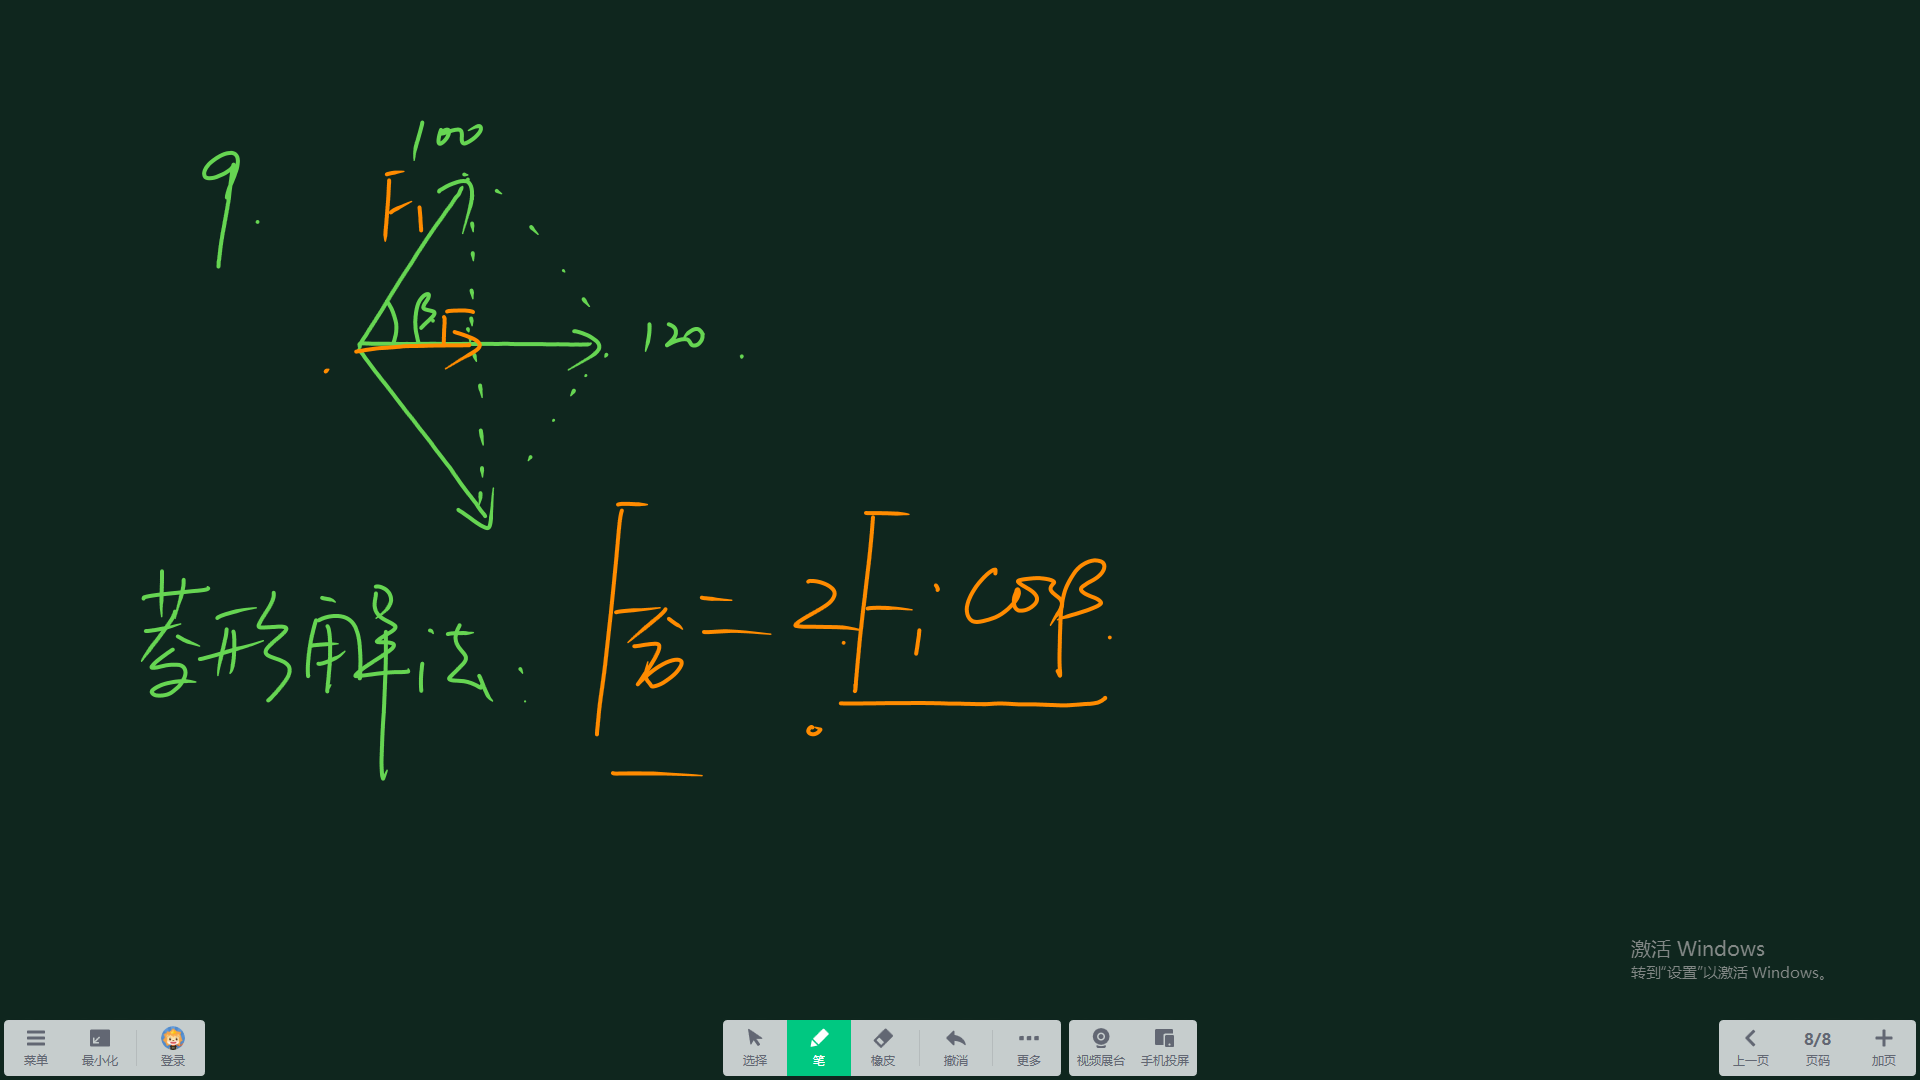 9.
100
F₁
β
F
120
菱形解法:
F合 = 2F₁·cosβ
激活 Windows
转到“设置”以激活 Windows。
菜单
最小化
登录
选择
笔
橡皮
撤消
更多
视频展台
手机投屏
上一页
8/8
页码
加页